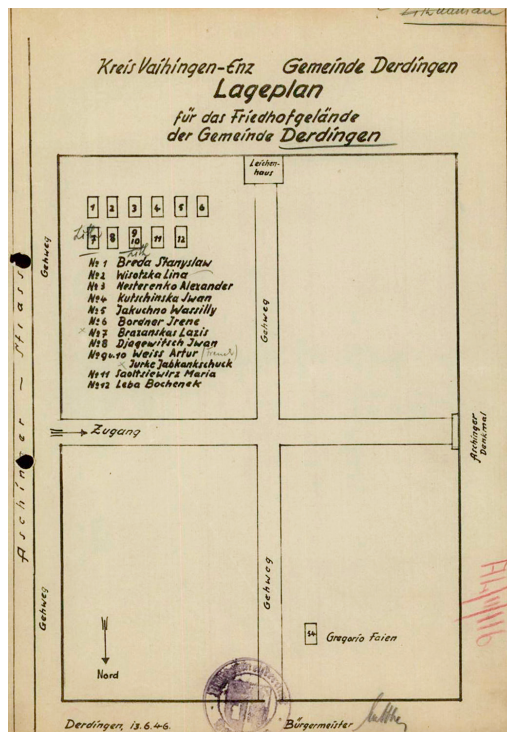 Kreis Vaihingen-Enz Gemeinde Derdingen
Lageplan
für das Friedhofgelände
der Gemeinde Derdingen
Leichen-
haus
1 2 3 4 5 6
7 8 9 10 11 12
Nº 1 Breda Stanyslaw
Nº 2 Wisotzka Lina
Nº 3 Nesterenko Alexander
Nº 4 Kutschinska Iwan
Nº 5 Jakuchno Wassilly
Nº 6 Bordner Irene
Nº 7 Brazanskas Lazis
Nº 8 Djagewitsch Iwan
Nº 9 u. 10 Weiss Artur
Jurke Jabkankschuck
Nº 11 Saoltsiewirz Maria
Nº 12 Leba Bochenek
Gehweg
Gehweg
Zugang
Aschinger
Denkmal
Aschinger - Strasse
Gehweg
Gehweg
54 Gregorio Faien
Nord
Derdingen, 13.6.46. Bürgermeister